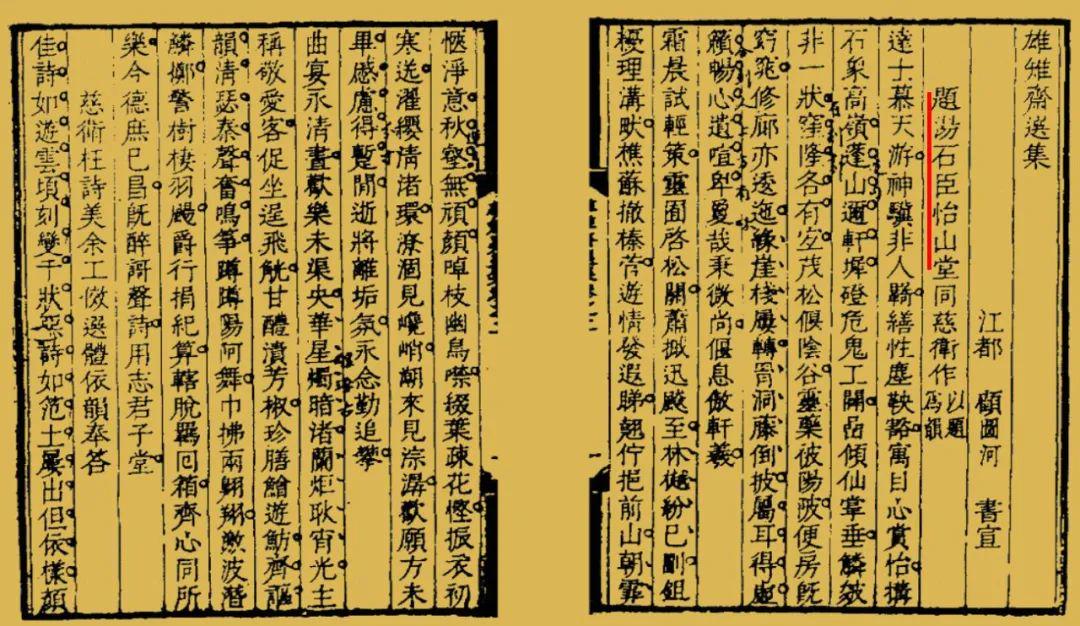 雄雉齋選集
江都　顧圖河　書宣
題湯石臣怡山堂同慈衛作以題為韻
達士慕天游神驥非人羈繕性塵鞅豁寓目心賞怡搆
石象高嶺蓬山邇軒墀磴危鬼工開嵒傾仙掌垂鱗皴
非一狀窪隆各有宜茂松偃陰谷靈藥依陽陂便房既
窈窕修廊亦逶迤緣崖棧屢轉洞藤倒披屬耳得
籟暢心遺喧卑愛哉秉微尚偃息傲軒羲
霜晨試輕策靈囿啓松關蕭摵迅飈至林樾紛已刪鉏
理溝畎樵蘇撤榛菅遊情發遐睇翹佇挹前山朝霏
愜淨意秋壑無頑顏啅枝幽鳥噤綴葉疎花慳振衣初
寒送濯纓清渚環潦涸見巉峭潮來見淙潺歡願方未
畢感慮得蹔閒逝將離垢氛永念勤追攀
曲宴永清晝歡樂未渠央華星燭暗渚蘭炬耿宵光主
稱敬愛客促坐逞飛觥甘醴漬芳椒珍膳鱠遊魴齊謳
韻清瑟秦聲奮鳴箏蹲蹲陽阿舞巾拂兩翱翔激波潛
鱗擲警樹棲羽颺爵行捐紀算轄脫羈回箱齊心同所
樂今德庶已昌既醉謌聲詩用志君子堂
慈衛枉詩美余工倣選體依韻奉答
佳詩如遊雲頃刻變千狀惡詩如范土屢出但依樣頗